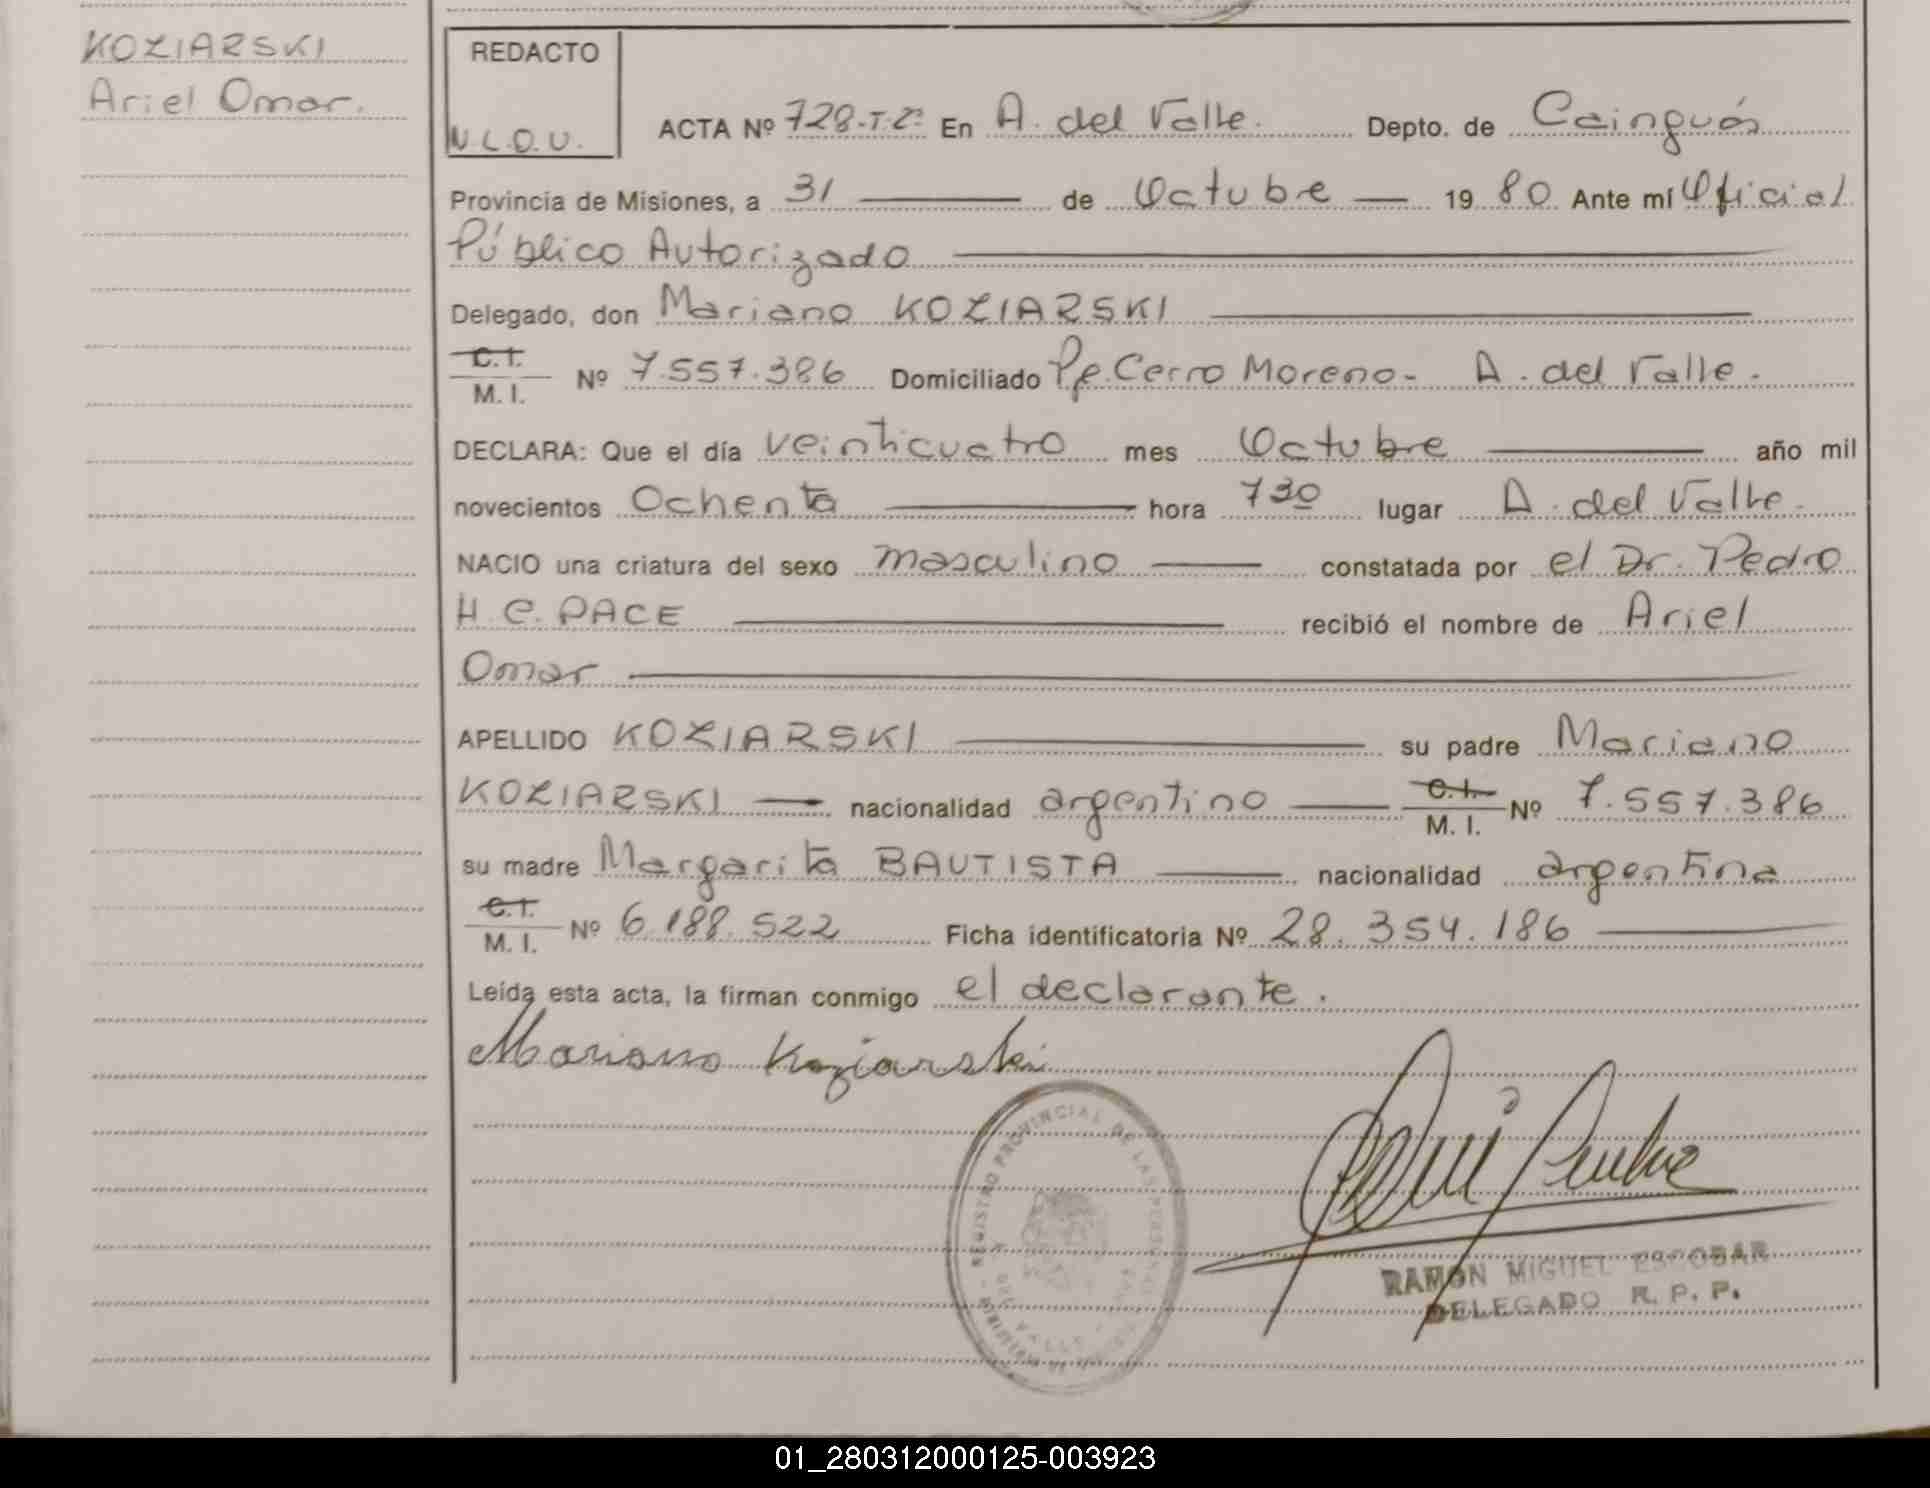 KOZIARSKI
Ariel Omar.
REDACTO
N.L.D.U.
ACTA Nº 728-T-2º En A. del Valle. Depto. de Cainguás
Provincia de Misiones, a 31 de Octubre 19 80 Ante mí Oficial
Público Autorizado
Delegado, don Mariano KOZIARSKI
C.I.
M. I. Nº 7.557.386 Domiciliado Pje. Cerro Moreno - A. del Valle.
DECLARA: Que el día veinticuatro mes Octubre año mil
novecientos Ochenta hora 730 lugar A. del Valle.
NACIO una criatura del sexo masculino constatada por el Dr. Pedro
H. C. PACE recibió el nombre de Ariel
Omar
APELLIDO KOZIARSKI su padre Mariano
KOZIARSKI nacionalidad argentino C.I. M. I. Nº 7.557.386
su madre Margarita BAUTISTA nacionalidad argentina
C.I.
M. I. Nº 6.188.522 Ficha identificatoria Nº 28.354.186
Leída esta acta, la firman conmigo el declarante.
Mariano Koziarski
REGISTRO PROVINCIAL DE LAS PERSONAS
RAMON MIGUEL ESCOBAR
DELEGADO R. P. P.
01_280312000125-003923